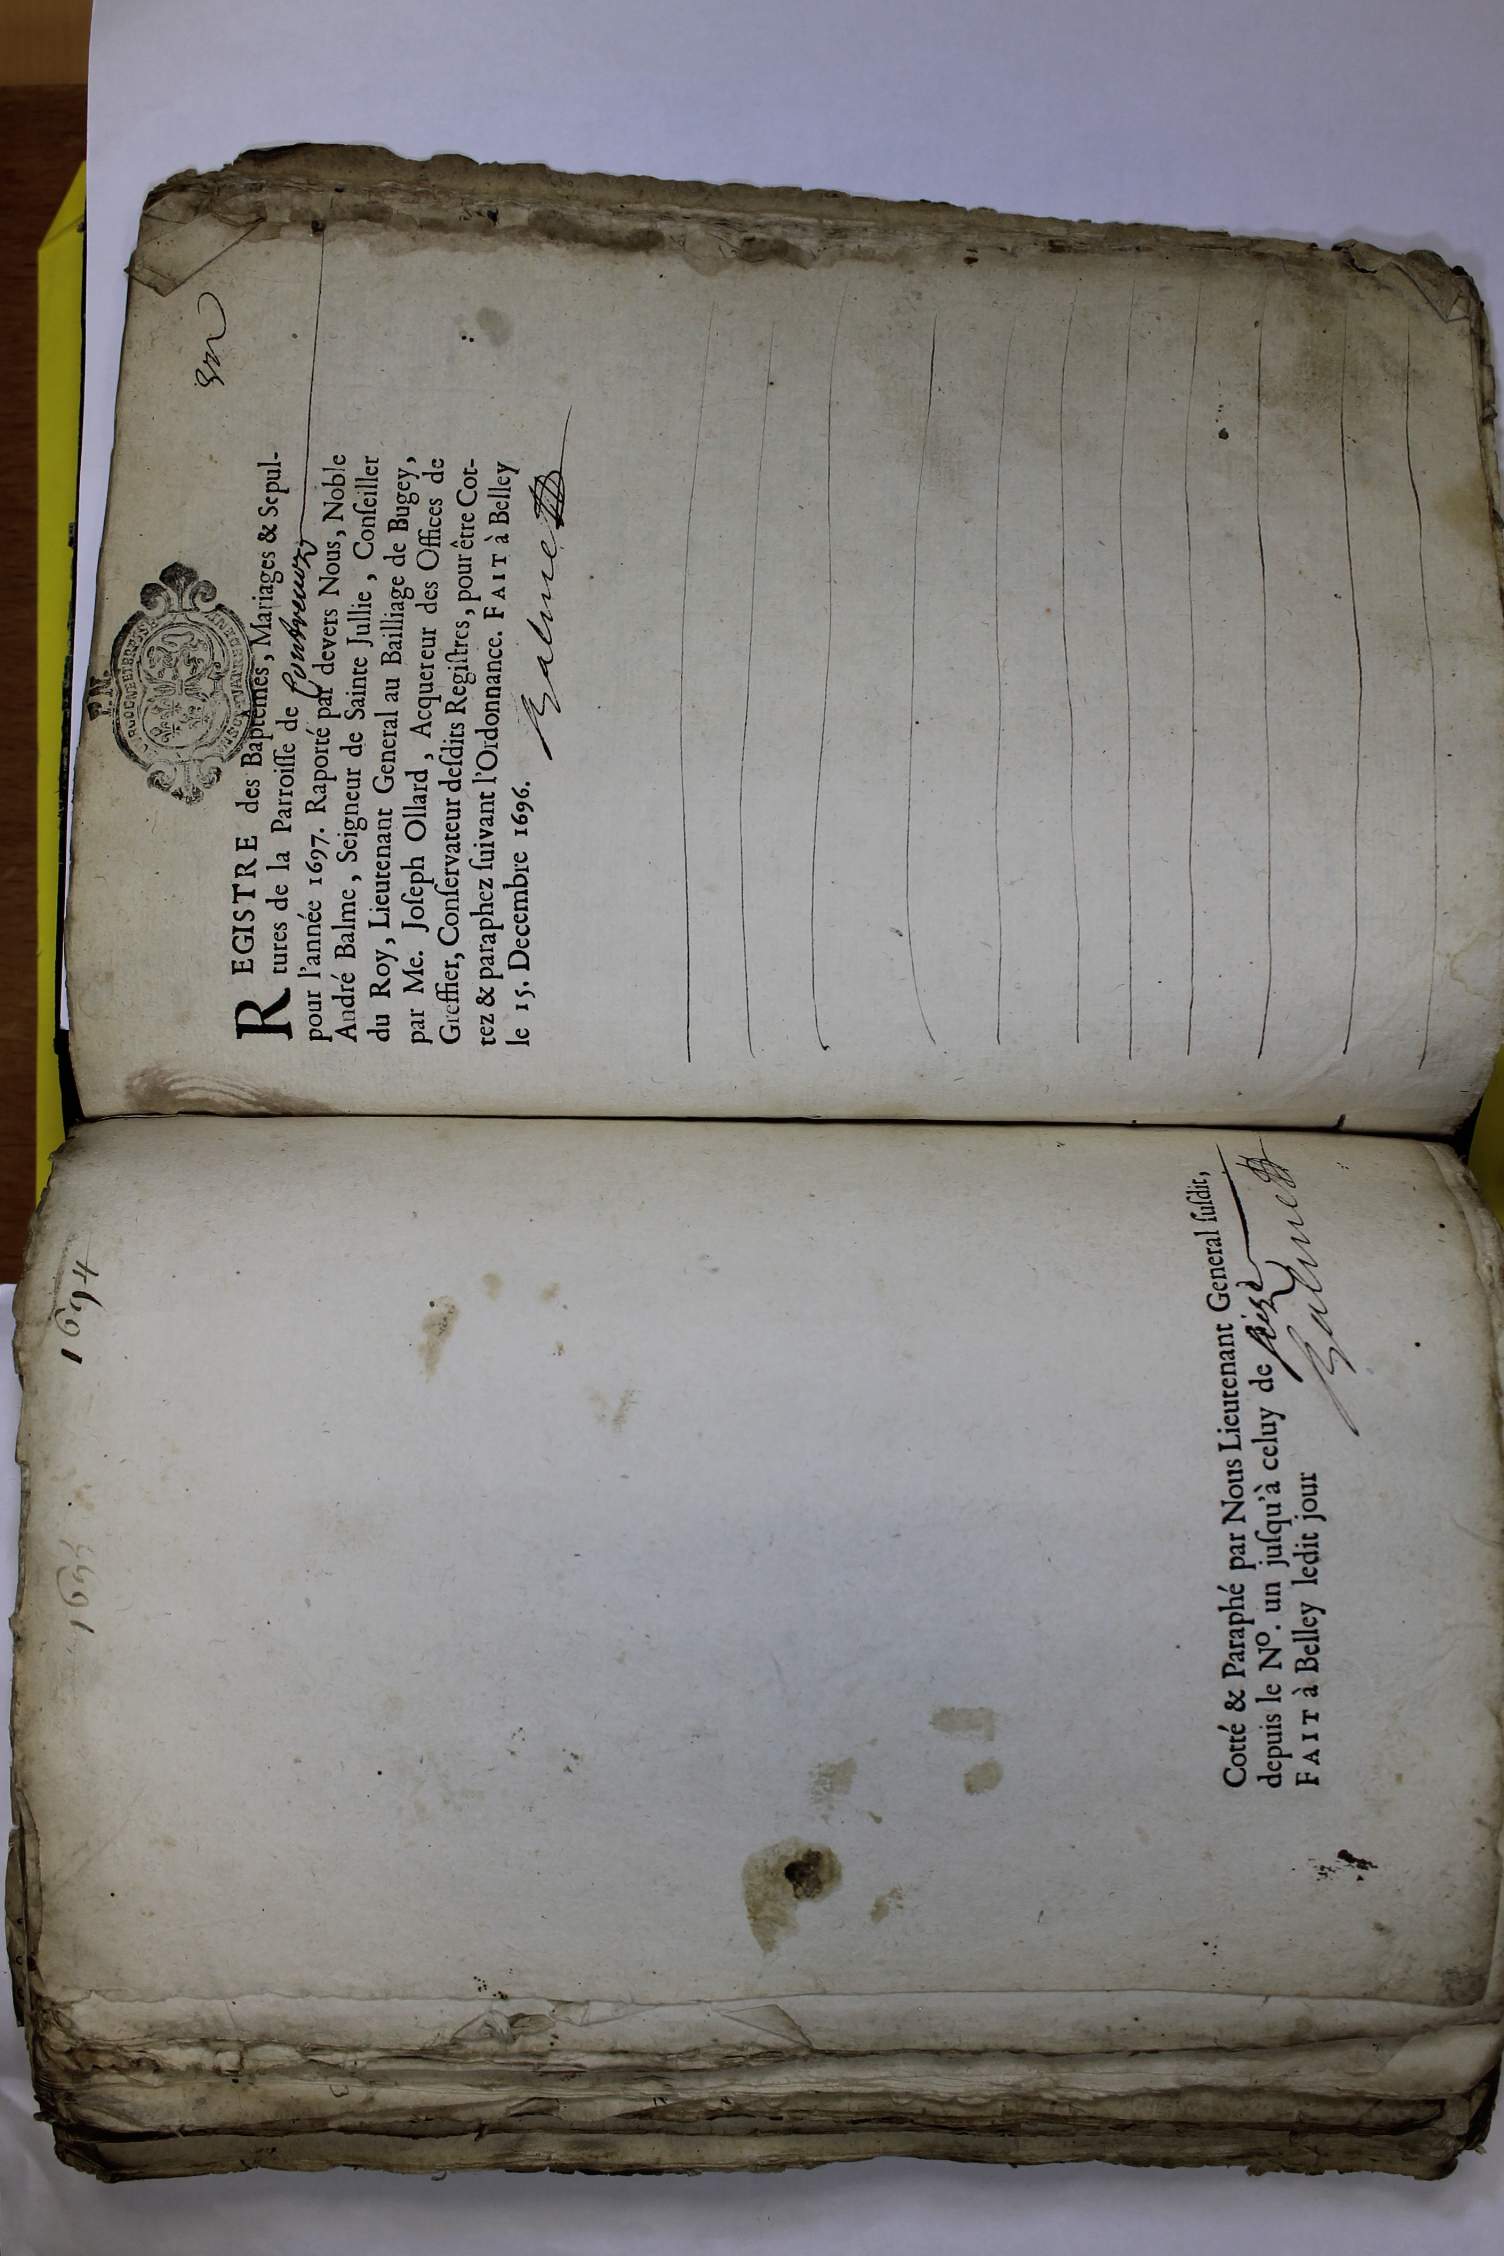 1694
Cotté & Paraphé par Nous Lieutenant General ſuſdit,
depuis le Nº. un juſqu'à celuy de
FAIT à Belley ledit jour
Balme
I.N.
REGISTRE des Baptêmes, Mariages & Sepul-
tures de la Parroiſſe de Contrevoz
pour l'année 1697. Raporté par devers Nous, Noble
André Balme, Seigneur de Sainte Jullie, Conſeiller
du Roy, Lieutenant General au Bailliage de Bugey,
par Me. Joſeph Ollard, Acquereur des Offices de
Greffier, Conſervateur deſdits Regiſtres, pour être Cot-
tez & paraphez ſuivant l'Ordonnance. FAIT à Belley
le 15. Decembre 1696.
Balme